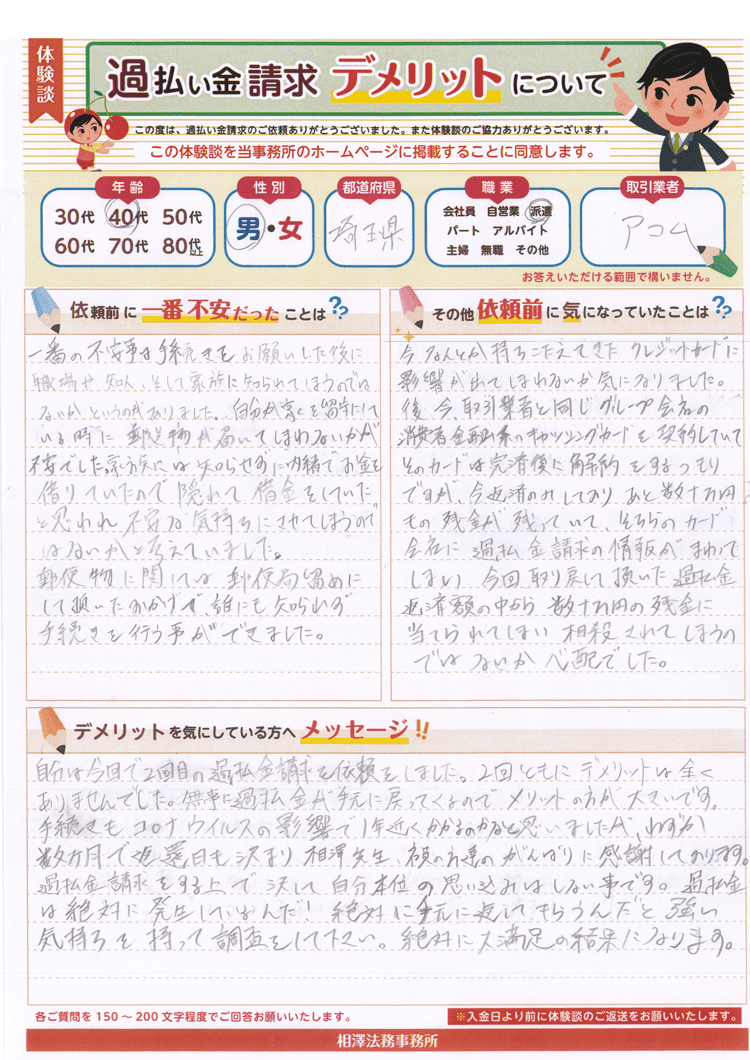 体験談
過払い金請求 デメリットについて
この度は、過払い金請求のご依頼ありがとうございました。また体験談のご協力ありがとうございます。
この体験談を当事務所のホームページに掲載することに同意します。
年齢
30代 40代 50代
60代 70代 80代以上
性別
男・女
都道府県
埼玉県
職業
会社員 自営業 派遣
パート アルバイト
主婦 無職 その他
取引業者
アコム
お答えいただける範囲で構いません。
依頼前に一番不安だったことは??
一番の不安事は手続きをお願いした後に
職場や知人、そして家族に知られてしまうのでは
ないかというのがありました。自分が家を留守にして
いる時に郵送物が届いてしまわないかが
不安でした。家族には知らせずに内緒でお金を
借りていたので隠れて借金をしていた
と思われ不安な気持ちにさせてしまうので
はないかと考えていました。
郵便物に関しては郵便局留めに
して頂いたおかげで、誰にも知られず
手続きを行う事ができました。
その他依頼前に気になっていたことは??
今なんとか持ちこたえてきたクレジットカードに
影響が出てしまわないか気になりました。
後、今、取引業者と同じグループ会社の
消費者金融系のキャッシングカードを契約していて
そのカードは完済後に解約をするつもり
ですが、今返済のみしており、あと数十万円
もの残金が残っていて、そちらのカード
会社に過払金請求の情報がまわって
しまい今回取り戻して頂いた過払金
返済額の中から数十万円の残金に
当てられてしまい相殺されてしまうの
ではないか心配でした。
デメリットを気にしている方へメッセージ!!
自分は今回で2回目の過払金請求を依頼をしました。2回ともにデメリットは全く
ありませんでした。無事に過払金が手元に戻ってくるのでメリットの方が大きいです。
手続きもコロナウイルスの影響で1年近くかかるのかなと思いましたが、わずか
数カ月で返還日も決まり相澤先生、 のがんばりに感謝しております。
過払金請求をする上で決して自分本位の思い込みはしない事です。過払金
は絶対に発生しているんだ!絶対に手元に返してもらうんだと強い
気持ちを持って調査をして下さい。絶対に大満足の結果になります。
各ご質問を150〜200文字程度でご回答お願いいたします。
※入金日より前に体験談のご返送をお願いいたします。
相澤法務事務所